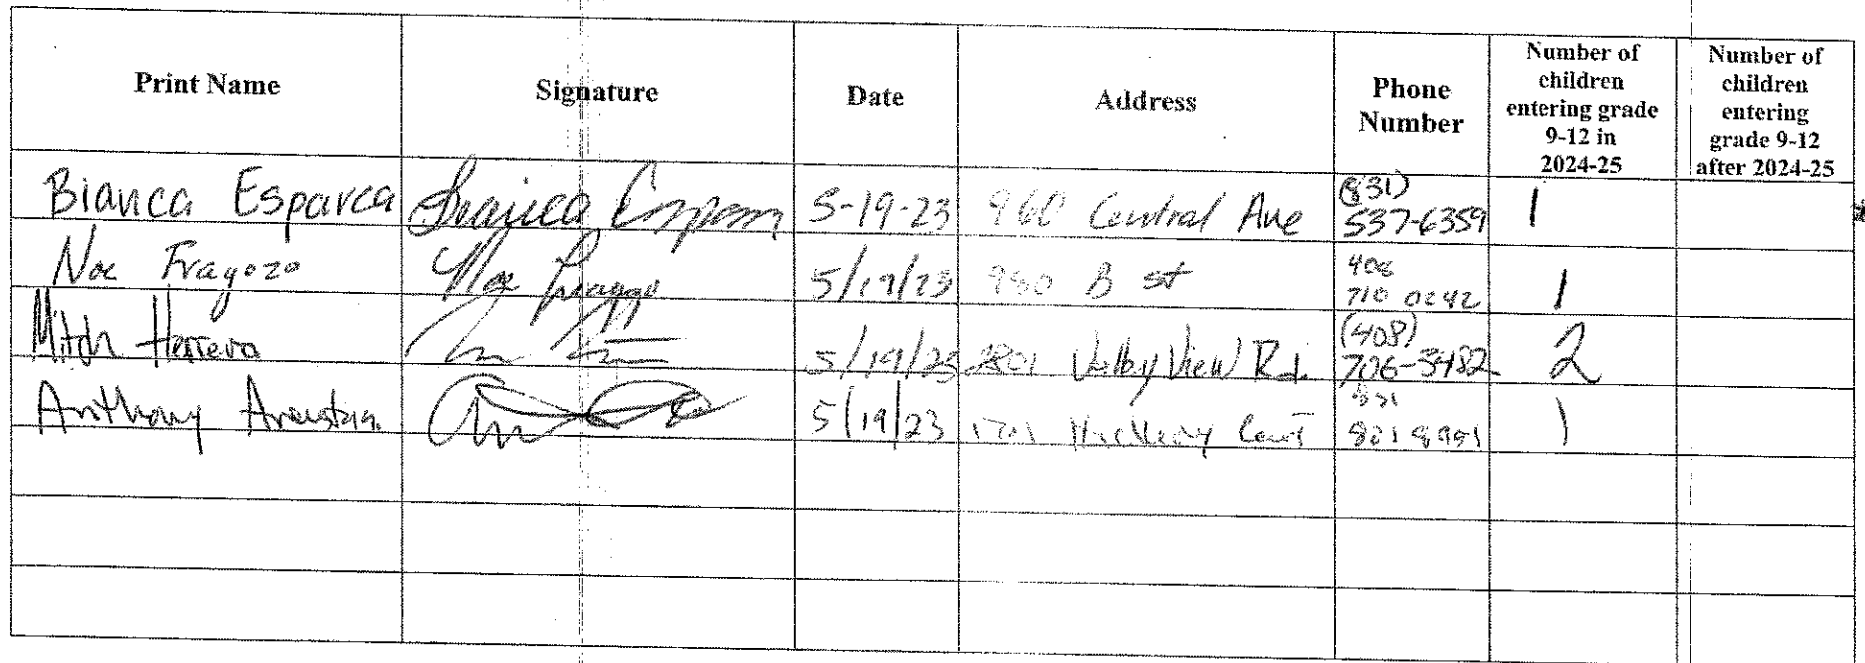 Print Name Signature Date Address Phone Number Number of children entering grade 9-12 in 2024-25 Number of children entering grade 9-12 after 2024-25
Bianca Esparca 5-19-23 960 Central Ave (831) 537-6359 1
Noe Fragozo Noe Fragozo 5/19/23 980 B st 408 710 0242 1
Mitch Herrera 5/19/23 2801 Valley View Rd. (408) 706-3482 2
Anthony 5/19/23 Court 1